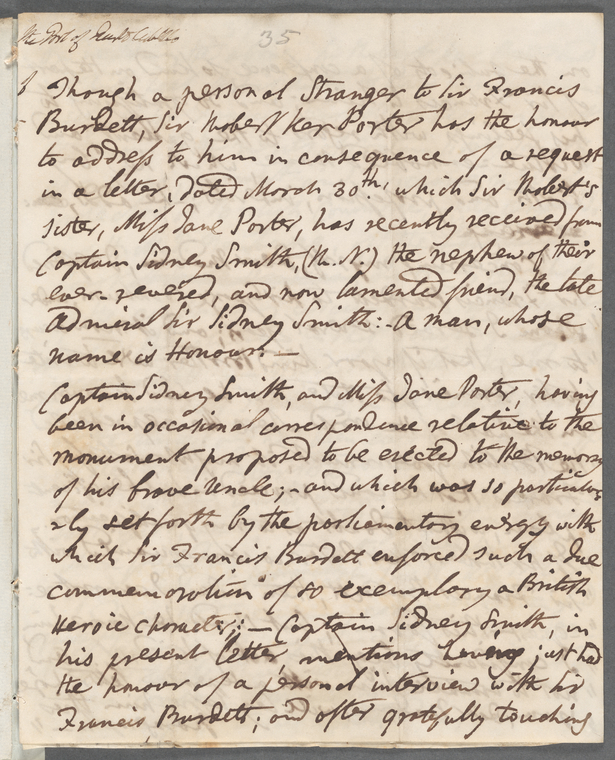 35
Though a personal Stranger to Sir Francis
Burdett, Sir Robert Ker Porter has the honour
to address to him in consequence of a request
in a letter, dated March 30th, which Sir Robert's
sister, Miss Jane Porter, has recently received from
Captain Sidney Smith, (R.N.) the nephew of their
ever-revered, and now lamented friend, the late
Admiral Sir Sidney Smith:- A man, whose
name is Honour. —
Captain Sidney Smith, and Miss Jane Porter, having
been in occasional correspondence relative to the
monument proposed to be erected to the memory
of his brave Uncle; - and which was so particula-
rly set forth by the parliamentary energy with
which Sir Francis Burdett enforced such a due
commemoration of so exemplary a British
Heroic character; — Captain Sidney Smith, in
his present letter, mentions having just had
the honour of a personal interview with Sir
Francis Burdett; and after gratefully touching